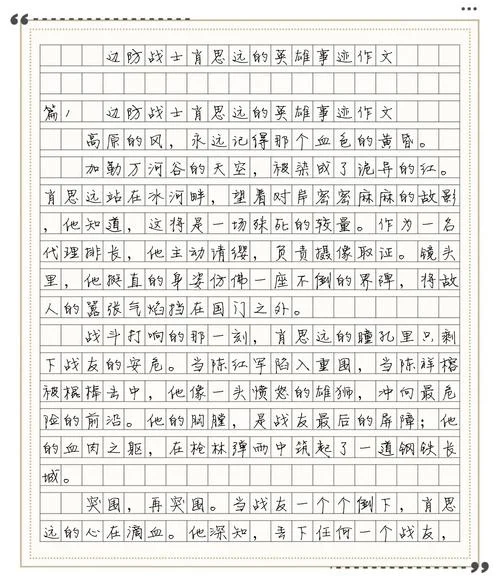 边防战士肖思远的英雄事迹作文
篇1 边防战士肖思远的英雄事迹作文
高原的风，永远记得那个血色的黄昏。
加勒万河谷的天空，被染成了诡异的红。
肖思远站在冰河畔，望着对岸密密麻麻的敌影
，他知道，这将是一场殊死的较量。作为一名
代理排长，他主动请缨，负责摄像取证。镜头
里，他挺直的身姿仿佛一座不倒的界碑，将敌
人的嚣张气焰挡在国门之外。
战斗打响的那一刻，肖思远的瞳孔里只剩
下战友的安危。当陈红军陷入重围，当陈祥榕
被棍棒击中，他像一头愤怒的雄狮，冲向最危
险的前沿。他的胸膛，是战友最后的屏障；他
的血肉之躯，在枪林弹雨中筑起了一道钢铁长
城。
突围，再突围。当战友一个个倒下，肖思
远的心在滴血。他深知，丢下任何一个战友，